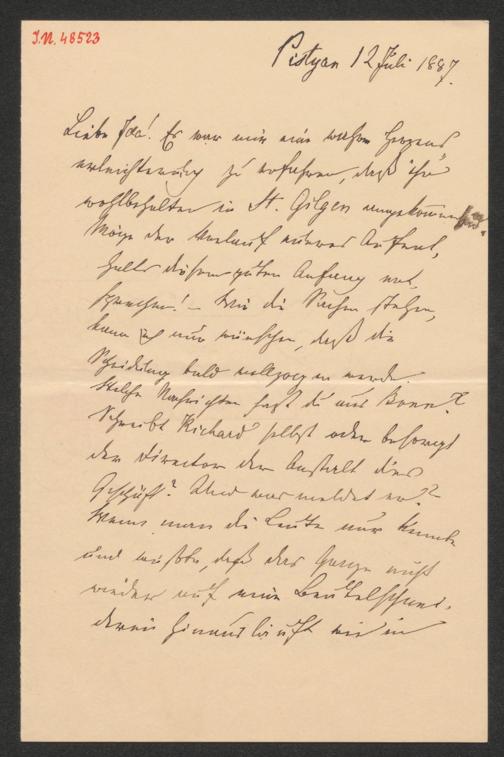 I.N. 48523
Pistyan 12 Juli 1887.
Liebe Ida! Es war mir eine wahre Herzens
erleichterung zu erfahren, daß ihr
wohlbehalten in St. Gilgen angekommen seid.
Möge der Verlauf eueres Aufent,
halts diesem guten Anfang ent,
sprechen! – Wie die Sachen stehen,
kann ich nur wünschen, daß die
Scheidung bald vollzogen werde.
Welche Nachrichten hast du aus Bonn?
Schreibt Richard selbst oder besorgt
der Director der Anstalt dies
Geschäft? Und was meldet er?
Wenn man die Leute nur kennte
und wüßte, daß das Ganze nicht
wieder auf eine Beutelschnei,
derei hinausläuft wie in